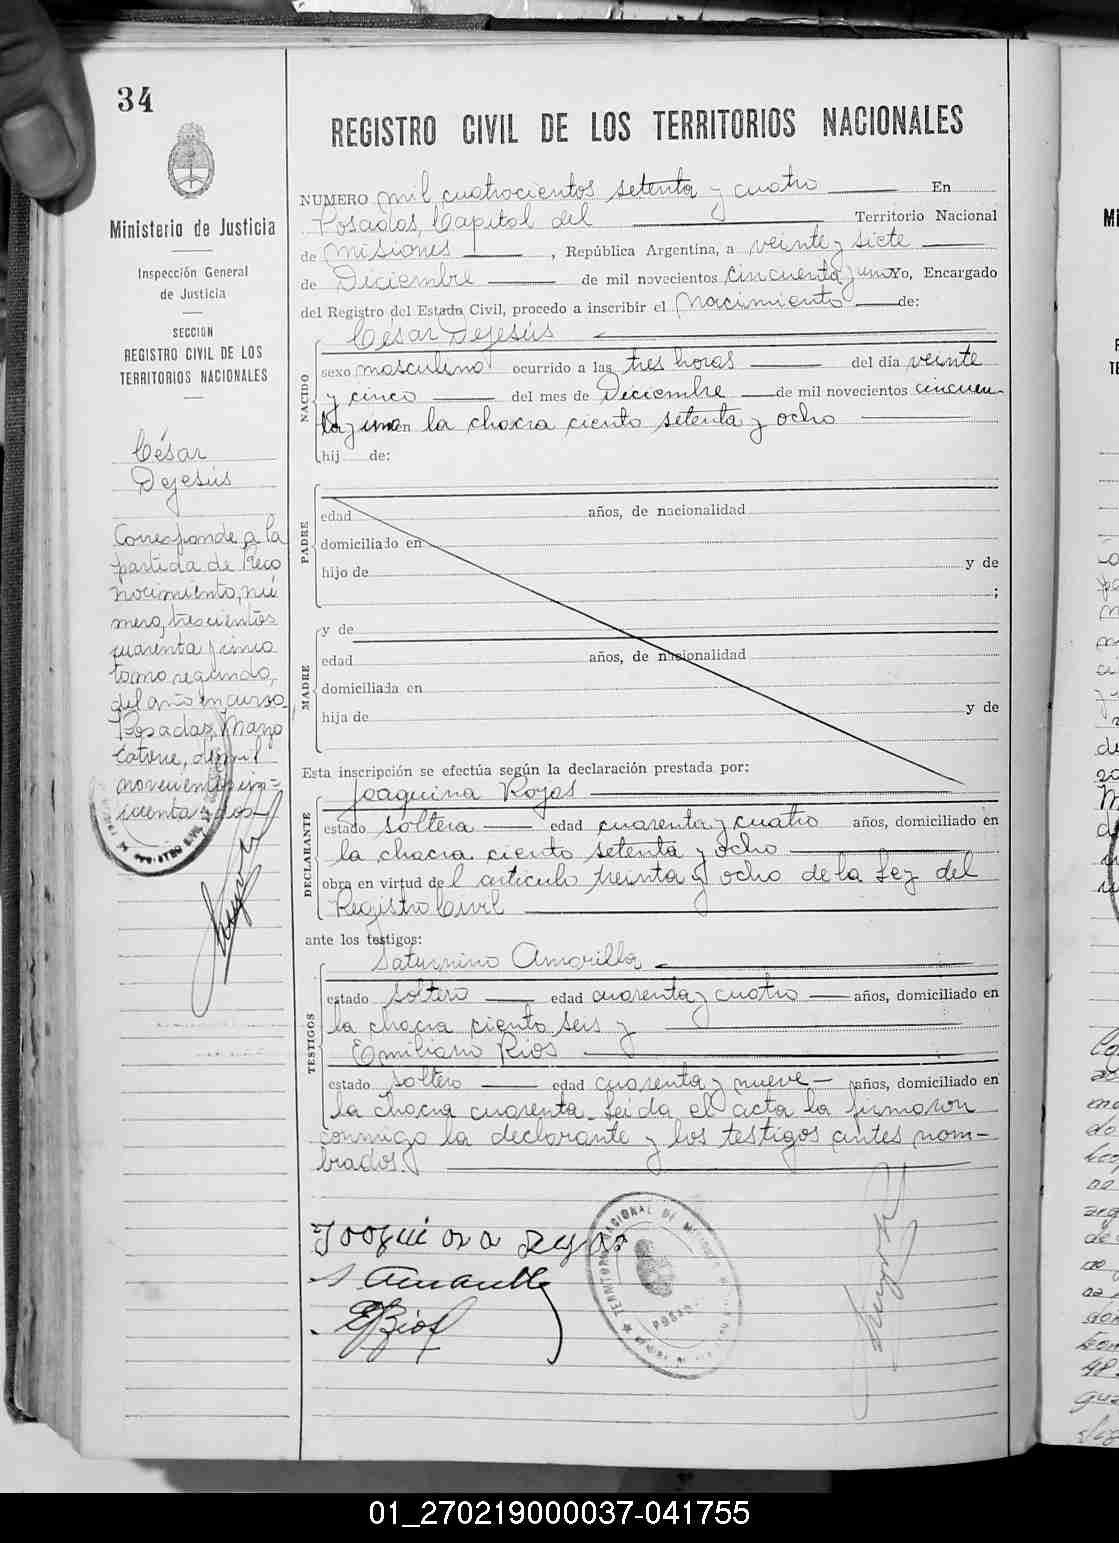 34
Ministerio de Justicia
Inspección General
de Justicia
SECCION
REGISTRO CIVIL DE LOS
TERRITORIOS NACIONALES
César
Dejesús
Corresponde a la
partida de Reco
nocimiento, nú
mero, trescientos
cuarenta y cinco
tomo segundo,
del año en curso.
Posadas, Marzo
catorce, de mil
novecientos cin=
cuenta y dos.-
REGISTRO CIVIL DE LOS TERRITORIOS NACIONALES
NUMERO mil cuatrocientos setenta y cuatro En
Posadas, Capital del Territorio Nacional
de Misiones, República Argentina, a veinte y siete
de Diciembre de mil novecientos cincuenta y uno Yo, Encargado
del Registro del Estado Civil, procedo a inscribir el Nacimiento de:
NACIDO
César Dejesús
sexo masculino ocurrido a las tres horas del día veinte
y cinco del mes de Diciembre de mil novecientos cincuen-
ta y uno en la chacra ciento setenta y ocho
hij de:
PADRE
edad años, de nacionalidad
domiciliado en
hijo de y de
;
MADRE
y de
edad años, de nacionalidad
domiciliada en
hija de y de
Esta inscripción se efectúa según la declaración prestada por:
DECLARANTE
Joaquina Rojas
estado soltera edad cuarenta y cuatro años, domiciliado en
la chacra ciento setenta y ocho
obra en virtud del artículo treinta y ocho de la Ley del
Registro Civil
ante los testigos:
TESTIGOS
Saturnino Amarilla
estado soltero edad cuarenta y cuatro años, domiciliado en
la chacra ciento seis y
Emiliano Rios
estado soltero edad cuarenta y nueve años, domiciliado en
la chacra cuarenta. Leída el acta la firmaron
conmigo la declarante y los testigos antes nom-
brados.
Joaquina Rojas
S Amarilla
E Rios
TERRITORIO NACIONAL DE MISIONES
POSADAS
01_270219000037-041755